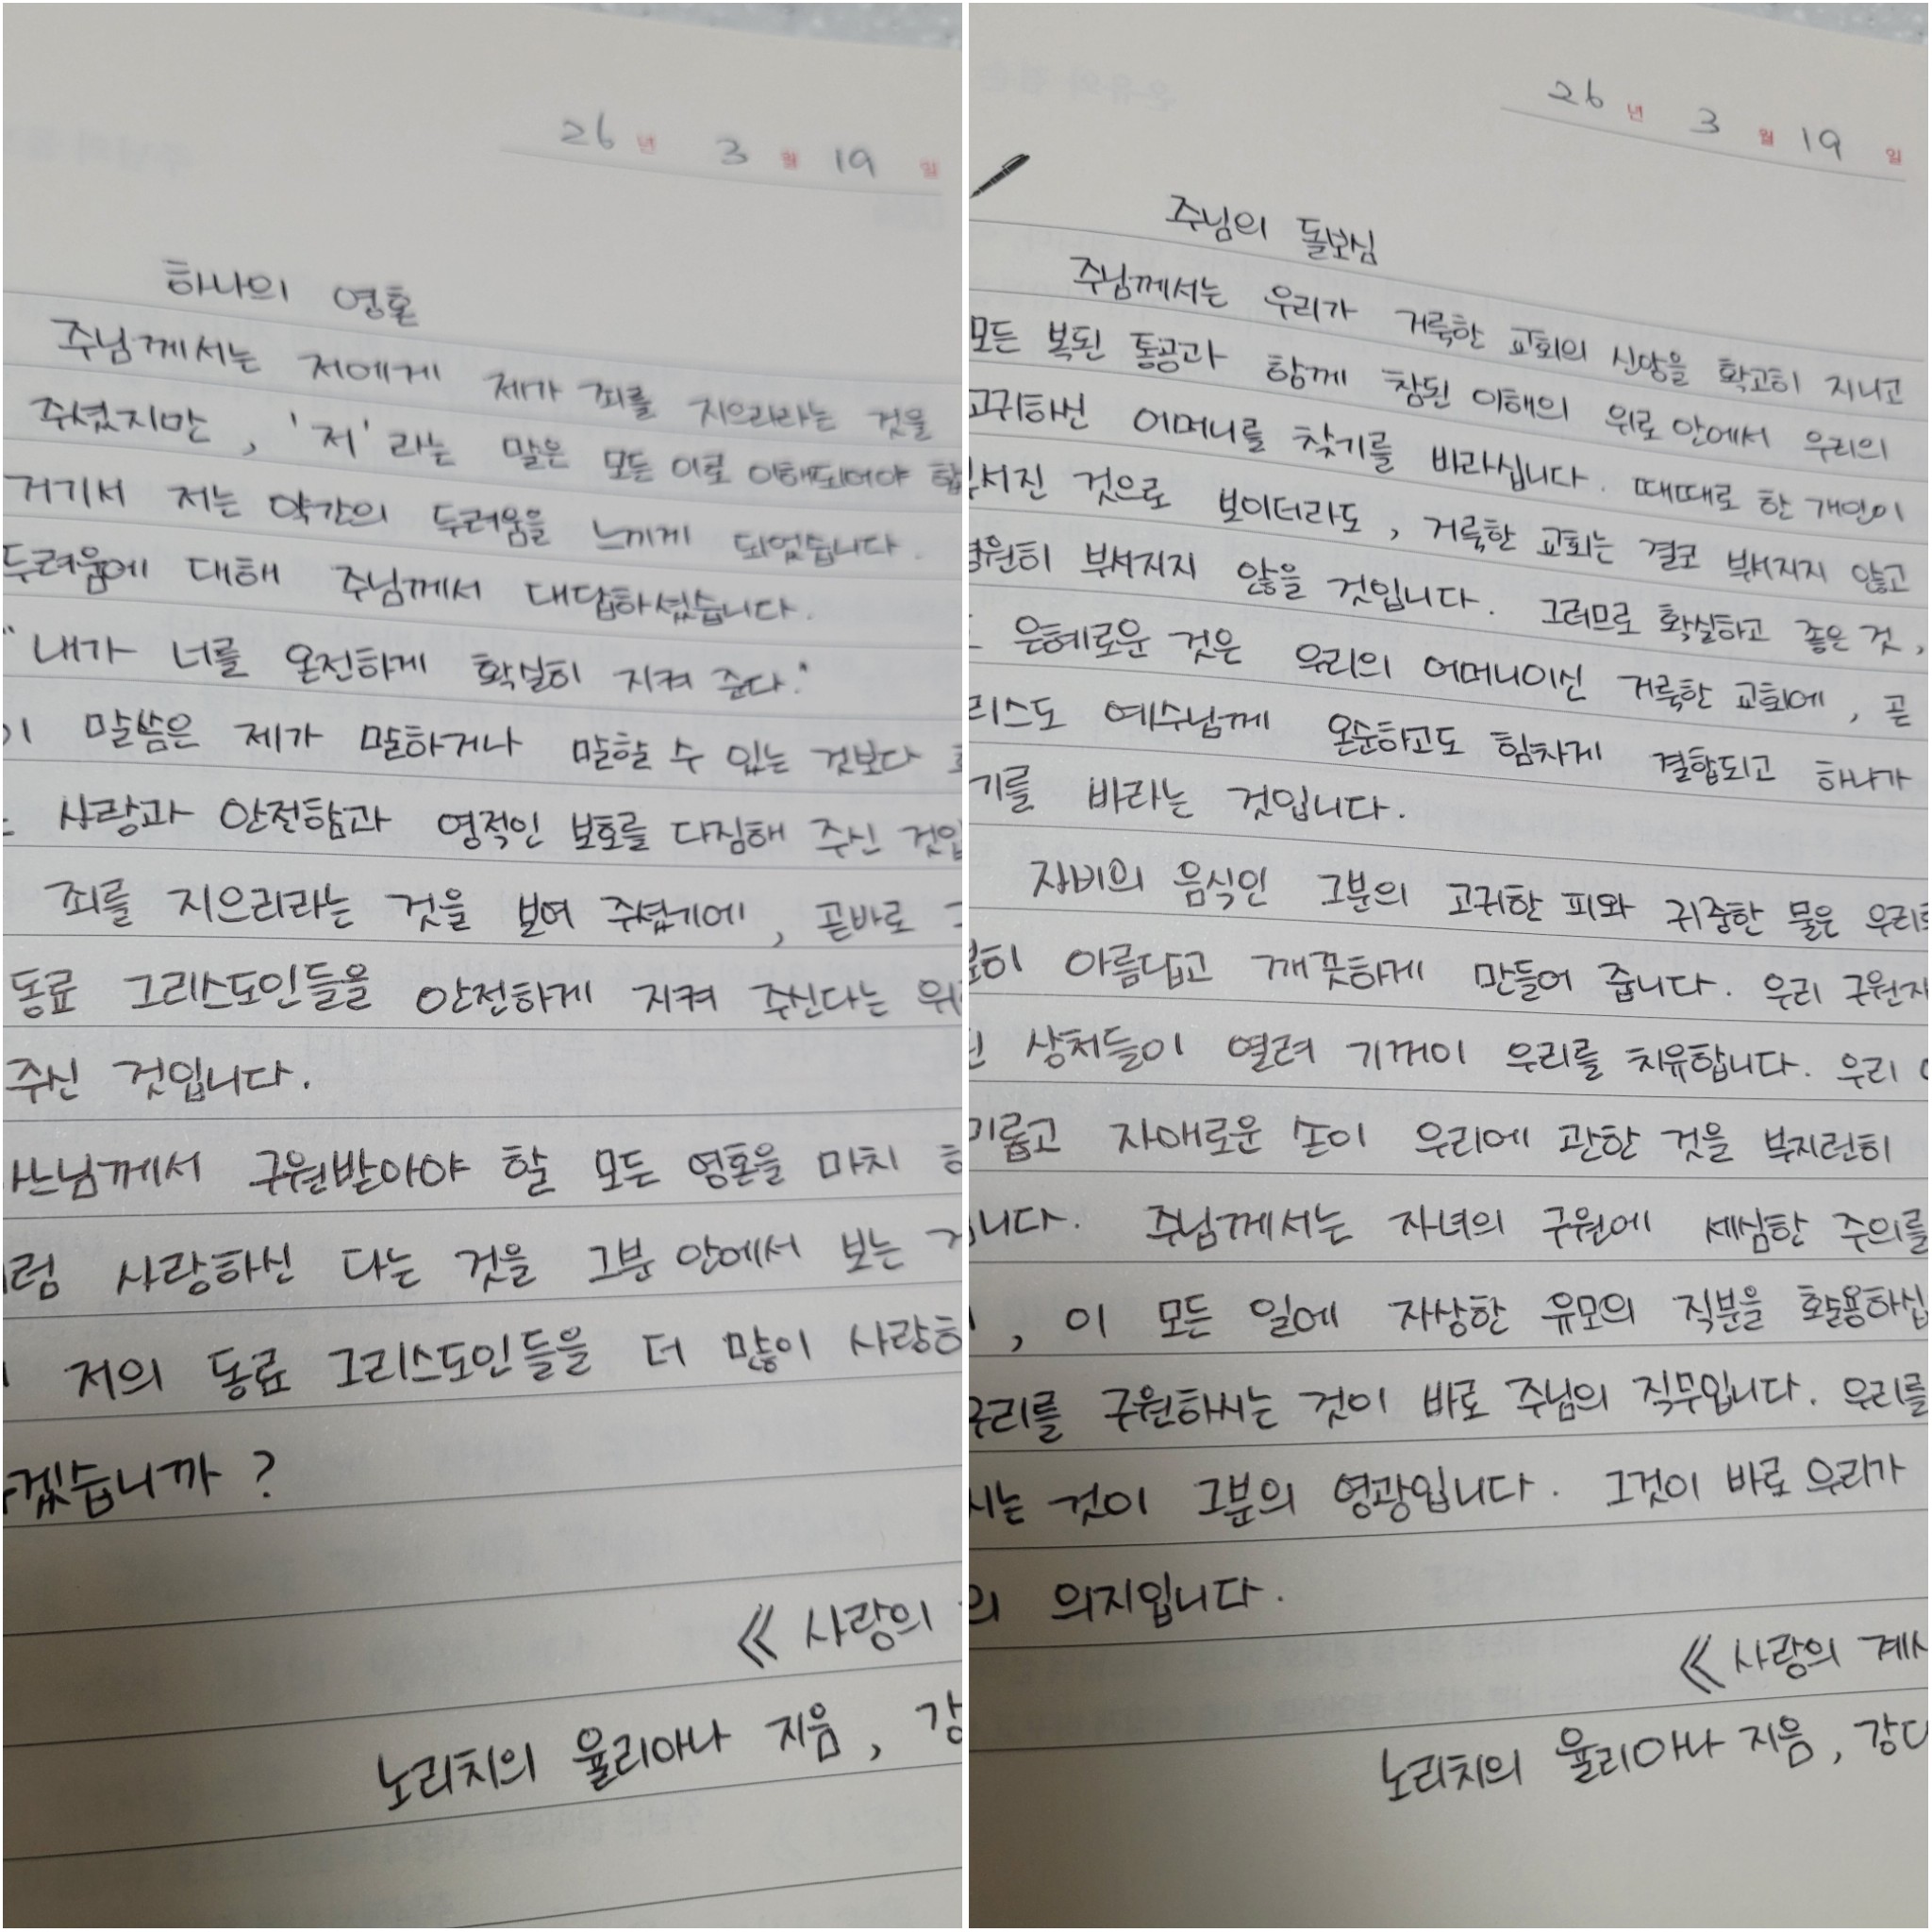 26 년 3 월 19 일
하나의 영혼
주님께서는 저에게 제가 죄를 지으리라는 것을
주셨지만, '저'라는 말은 모든 이로 이해되어야 합
거기서 저는 약간의 두려움을 느끼게 되었습니다.
두려움에 대해 주님께서 대답하셨습니다.
"내가 너를 온전하게 확실히 지켜 준다."
이 말씀은 제가 말하거나 말할 수 있는 것보다
사랑과 안전함과 영적인 보호를 다짐해 주신 것입
죄를 지으리라는 것을 보여 주셨기에, 곧바로 그
동료 그리스도인들을 안전하게 지켜 주신다는 위
주신 것입니다.
느님께서 구원받아야 할 모든 영혼을 마치 하
럼 사랑하신 다는 것을 그분 안에서 보는 것
저의 동료 그리스도인들을 더 많이 사랑하
겠습니까?
《사랑의
노리치의 율리아나 지음, 강
26 년 3 월 19 일
주님의 돌보심
주님께서는 우리가 거룩한 교회의 신앙을 확고히 지니고
모든 복된 통공과 함께 참된 이해의 위로 안에서 우리의
고귀하신 어머니를 찾기를 바라십니다. 때때로 한 개인이
서진 것으로 보이더라도, 거룩한 교회는 결코 부서지지 않고
영원히 부서지지 않을 것입니다. 그러므로 확실하고 좋은 것,
은혜로운 것은 우리의 어머니이신 거룩한 교회에, 곧
리스도 예수님께 온순하고도 힘차게 결합되고 하나가
기를 바라는 것입니다.
자비의 음식인 그분의 고귀한 피와 귀중한 물은 우리를
히 아름답고 깨끗하게 만들어 줍니다. 우리 구원자
상처들이 열려 기꺼이 우리를 치유합니다. 우리
기롭고 자애로운 손이 우리에 관한 것을 부지런히
니다. 주님께서는 자녀의 구원에 세심한 주의를
, 이 모든 일에 자상한 유모의 직분을 활용하십
우리를 구원하시는 것이 바로 주님의 직무입니다. 우리를
시는 것이 그분의 영광입니다. 그것이 바로 우리가
의 의지입니다.
《사랑의 계시
노리치의 율리아나 지음, 강대